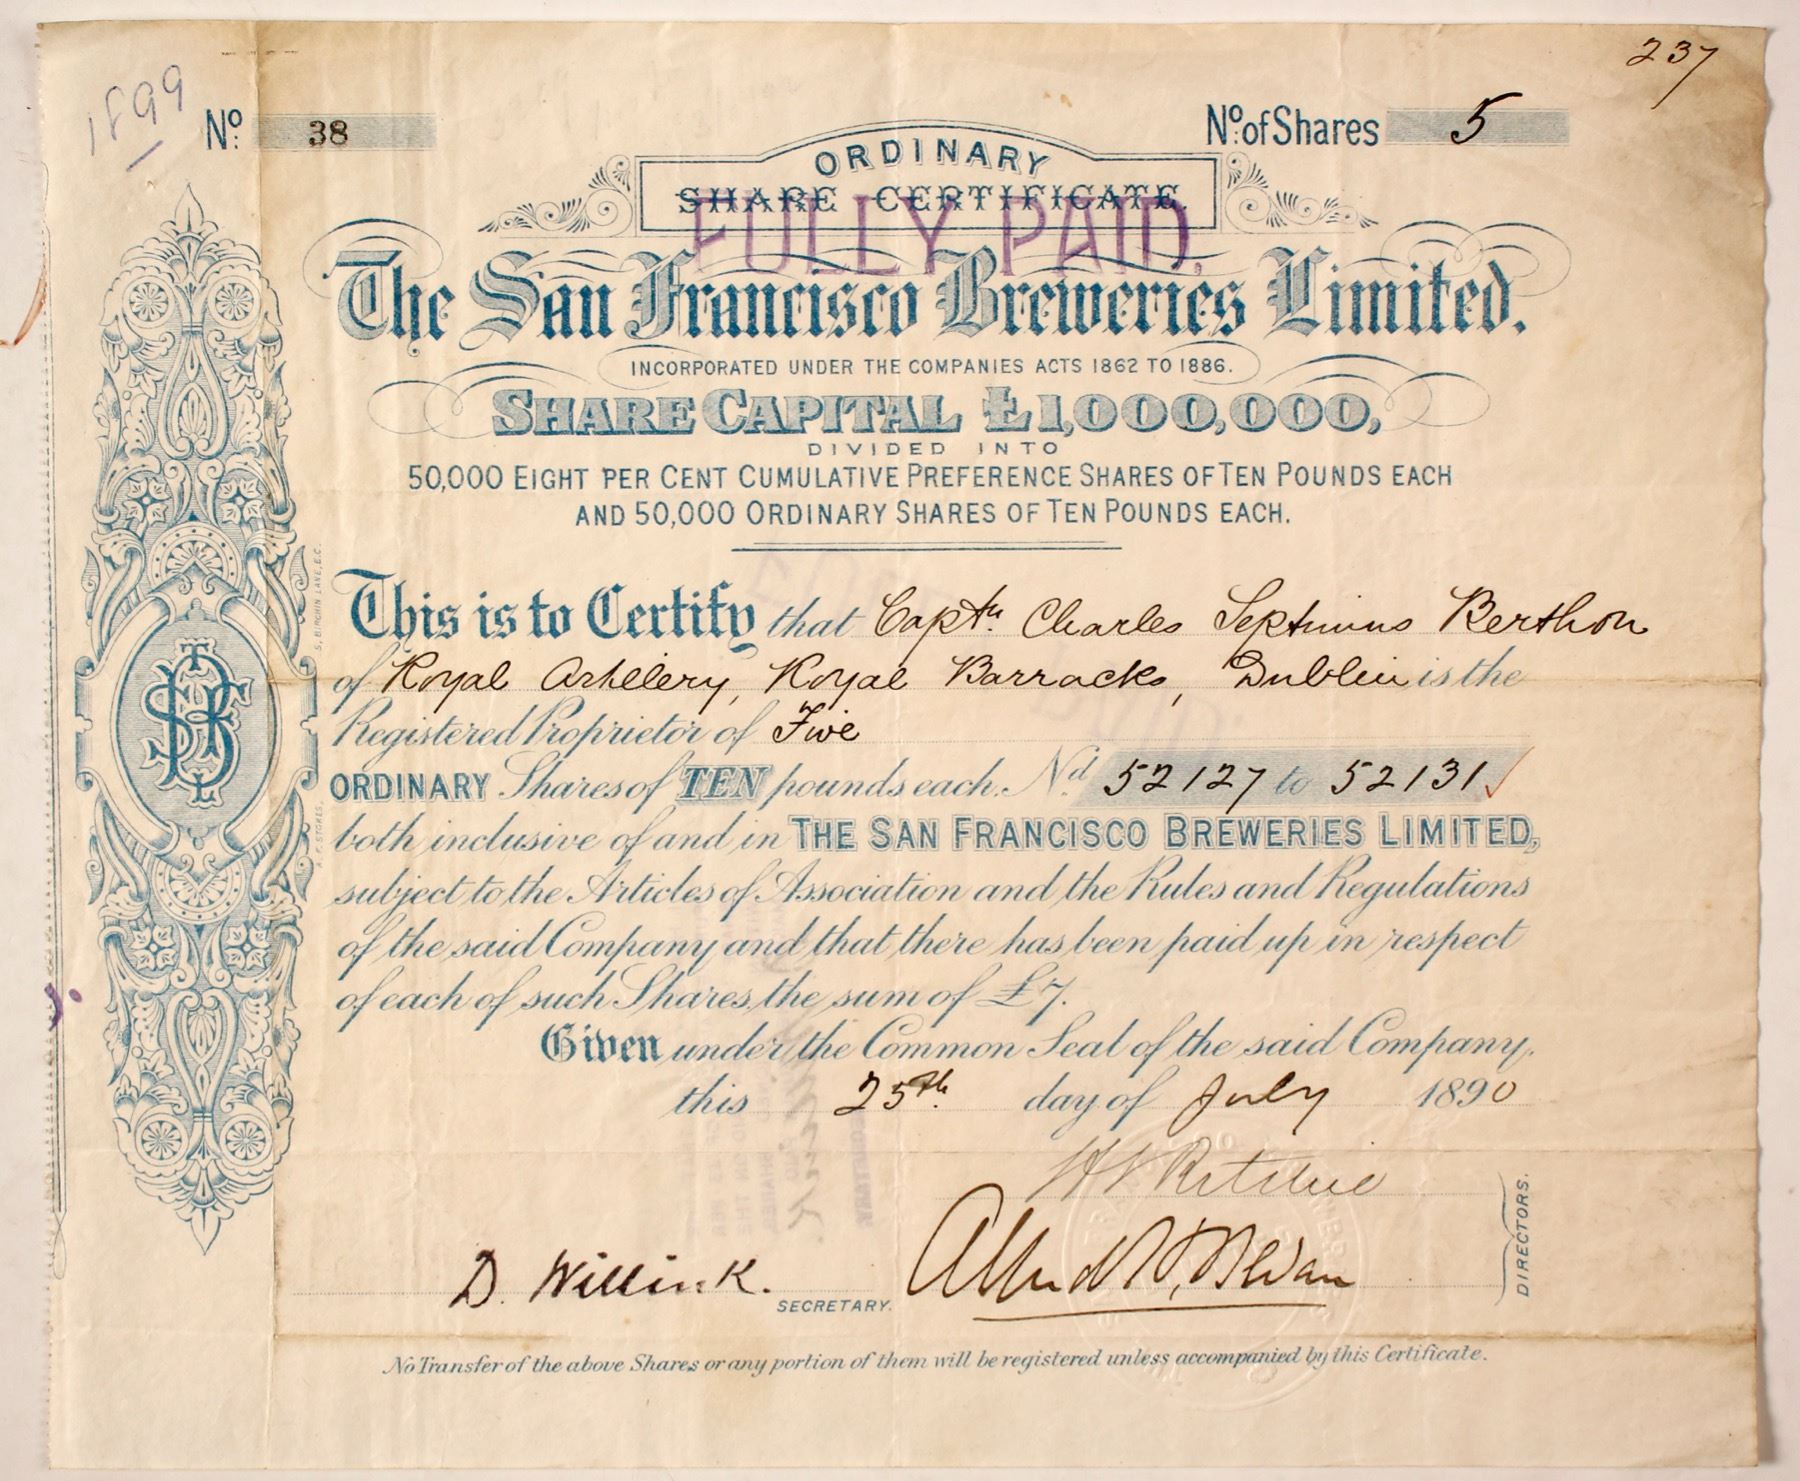 237
1899
No. 38
No. of Shares 5
ORDINARY
SHARE CERTIFICATE.
FULLY PAID.
The San Francisco Breweries Limited.
INCORPORATED UNDER THE COMPANIES ACTS 1862 TO 1886.
SHARE CAPITAL £1,000,000,
DIVIDED INTO
50,000 EIGHT PER CENT CUMULATIVE PREFERENCE SHARES OF TEN POUNDS EACH
AND 50,000 ORDINARY SHARES OF TEN POUNDS EACH.
This is to Certify that Captn. Charles Septimus Berthon
of Royal Artillery, Royal Barracks, Dublin is the
Registered Proprietor of Five
ORDINARY Shares of TEN pounds each. Nd. 52127 to 52131
both inclusive of and in THE SAN FRANCISCO BREWERIES LIMITED,
subject to the Articles of Association and the Rules and Regulations
of the said Company and that there has been paid up in respect
of each of such Shares, the sum of £7.
Given under the Common Seal of the said Company,
this 25th. day of July 1890
D. Willink. SECRETARY.
DIRECTORS.
No Transfer of the above Shares or any portion of them will be registered unless accompanied by this Certificate.